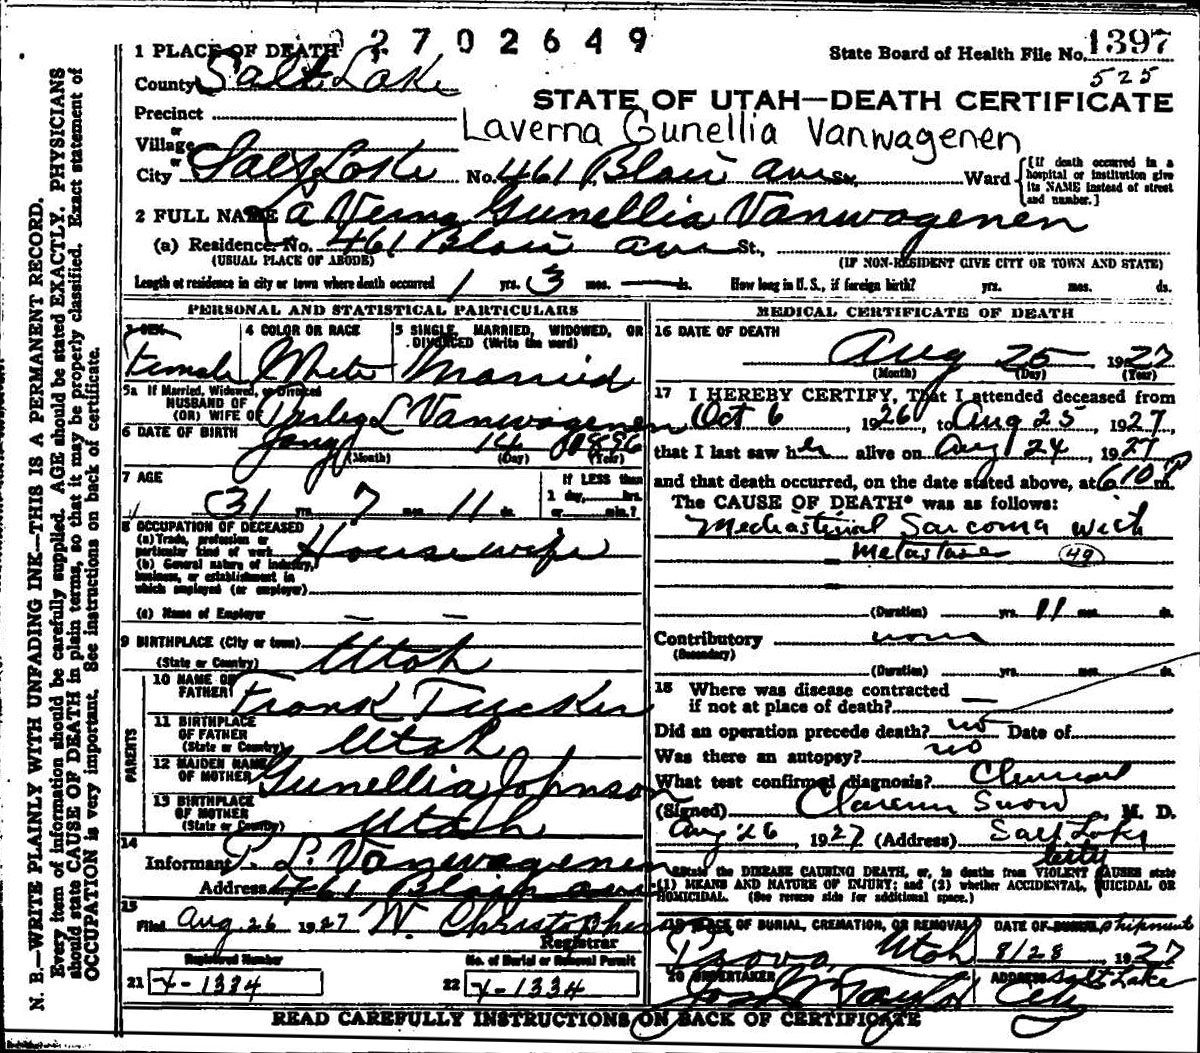 2702649
1 PLACE OF DEATH
State Board of Health File No. 1397
County Salt Lake
525
STATE OF UTAH—DEATH CERTIFICATE
Precinct
Laverna Gunellia Vanwagenen
or
Village
or
City Salt Lake No. 461 Blair ave St., Ward [If death occurred in a hospital or institution give its NAME instead of street and number.]
2 FULL NAME La Verna Gunellia Vanwagenen
(a) Residence. No. 461 Blair ave St.,
(USUAL PLACE OF ABODE) (IF NON-RESIDENT GIVE CITY OR TOWN AND STATE)
Length of residence in city or town where death occurred 1 yrs. 3 mos. — ds. How long in U. S., if foreign birth? yrs. mos. ds.
PERSONAL AND STATISTICAL PARTICULARS
3 SEX 4 COLOR OR RACE 5 SINGLE, MARRIED, WIDOWED, OR
DIVORCED (Write the word)
Female White Married
5a If Married, Widowed, or Divorced
HUSBAND OF
(OR) WIFE OF L Vanwagenen
6 DATE OF BIRTH Jany 14 1896
(Month) (Day) (Year)
7 AGE If LESS than
1 day, hrs.
31 yrs. 7 mos. 11 ds. or min.?
8 OCCUPATION OF DECEASED
(a) Trade, profession or
particular kind of work Housewife
(b) General nature of industry,
business, or establishment in
which employed (or employer)
(c) Name of Employer — —
9 BIRTHPLACE (City or town)
(State or Country) Utah
PARENTS
10 NAME OF
FATHER Frank Tucker
11 BIRTHPLACE
OF FATHER
(State or Country) Utah
12 MAIDEN NAME
OF MOTHER Gunellia Johnson
13 BIRTHPLACE
OF MOTHER
(State or Country) Utah
14
Informant P. L. Vanwagenen
Address 461 Blair ave
15
Filed Aug. 26 1927 W. Christopherson
Registrar
Registered Number No. of Burial or Removal Permit
21 X-1334 22 X-1334
MEDICAL CERTIFICATE OF DEATH
16 DATE OF DEATH
Aug 25 1927
(Month) (Day) (Year)
17 I HEREBY CERTIFY, That I attended deceased from
Oct 6, 1926, to Aug 25, 1927,
that I last saw her alive on Aug 24, 1927
and that death occurred, on the date stated above, at 610 P m.
The CAUSE OF DEATH* was as follows:
Mediastinal Sarcoma with
Metastases 49
(Duration) yrs. 11 mos. ds.
Contributory none
(Secondary)
(Duration) yrs. mos. ds.
18 Where was disease contracted
if not at place of death? —
Did an operation precede death? no Date of
Was there an autopsy? no
What test confirmed diagnosis? Clinical
(Signed) Clarence Snow, M. D.
Aug 26, 1927 (Address) Salt Lake
City
*State the DISEASE CAUSING DEATH, or, in deaths from VIOLENT CAUSES state
(1) MEANS AND NATURE OF INJURY; and (2) whether ACCIDENTAL, SUICIDAL OR
HOMICIDAL. (See reverse side for additional space.)
19 PLACE OF BURIAL, CREMATION, OR REMOVAL DATE OF BURIAL Shipment
Provo Utah 8/28 1927
20 UNDERTAKER ADDRESS Salt Lake
Taylor City
READ CAREFULLY INSTRUCTIONS ON BACK OF CERTIFICATE
N. B.—WRITE PLAINLY WITH UNFADING INK—THIS IS A PERMANENT RECORD.
Every item of information should be carefully supplied. AGE should be stated EXACTLY. PHYSICIANS
should state CAUSE OF DEATH in plain terms, so that it may be properly classified. Exact statement of
OCCUPATION is very important. See instructions on back of certificate.